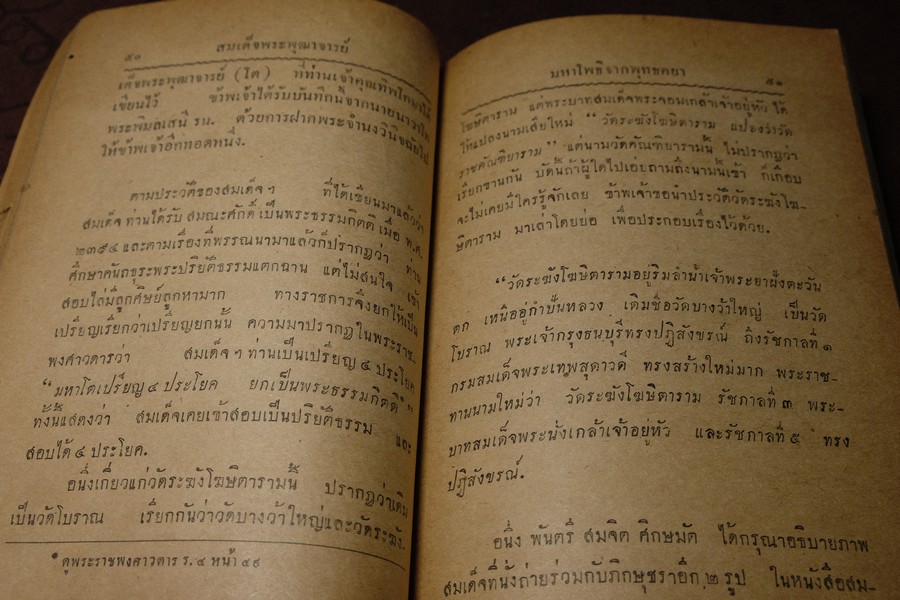 ๕๐ สมเด็จพระพุฒาจารย์
เด็จพระพุฒาจารย์ (โต) ที่ท่านเจ้าคุณทิพโกษาได้
เขียนไว้ ข้าพเจ้าได้รับบันทึกนี้จากนายนาวาโท
พระพิมลเสนี รน. ด้วยการฝากพระจำนงวินิจฉัยไป
ให้ข้าพเจ้าอีกทอดหนึ่ง.
ตามประวัติของสมเด็จฯ ที่ได้เขียนมาแล้วว่า
สมเด็จ ท่านได้รับ สมณะศักดิ์ เป็นพระธรรมกิตติ เมื่อ พ.ศ.
๒๓๙๔ และตามเรื่องที่พรรณนามาแล้วก็ปรากฏว่า ท่าน
ศึกษาคันถธุระพระปริยัติธรรมแตกฉาน แต่ไม่สนใจ เข้า
สอบไล่มีลูกศิษย์ลูกหามาก ทางราชการจึงยกให้เป็น
เปรียญเรียกว่าเปรียญยกนั้น ความมาปรากฏในพระราช-
พงศาวดารว่า สมเด็จฯ ท่านเป็นเปรียญ ๔ ประโยค
“มหาโตเปรียญ ๔ ประโยค ยกเป็นพระธรรมกิติ*”
ทั้งนี้แสดงว่า สมเด็จเคยเข้าสอบเป็นปริยัติธรรม และ
สอบได้ ๔ ประโยค.
อนึ่งเกี่ยวแก่วัดระฆังโฆษิตารามนี้ ปรากฏว่าเดิม
เป็นวัดโบราณ เรียกกันว่าวัดบางว้าใหญ่และวัดระฆัง.
* ดูพระราชพงศาวดาร ร.๔ หน้า ๕๙
มหาโพธิจากพุทธคยา ๕๑
โฆษิตาราม แต่พระบาทสมเด็จพระจอมเกล้าเจ้าอยู่หัว ได้
ให้แปลงนามเสียใหม่ “วัดระฆังโฆษิตาราม แปลงว่าวัด
ราชคัณฑิยาราม” แต่นามวัดคัณฑิยารามนี้ ไม่ปรากฏว่า
เรียกขานกัน บัดนี้ถ้าผู้ใดไปเอ่ยถามถึงนามนี้เข้า ก็เกือบ
จะไม่เคยมีใครรู้จักเลย ข้าพเจ้าขอนำประวัติวัดระฆังโฆ-
ษิตาราม มาเล่าโดยย่อ เพื่อประกอบเรื่องไว้ด้วย.
“วัดระฆังโฆษิตารามอยู่ริมลำน้ำเจ้าพระยาฝั่งตะวัน
ตก เหนืออู่กำปั่นหลวง เดิมชื่อวัดบางว้าใหญ่ เป็นวัด
โบราณ พระเจ้ากรุงธนบุรีทรงปฏิสังขรณ์ ถึงรัชกาลที่ ๑
กรมสมเด็จพระเทพสุดาวดี ทรงสร้างใหม่มาก พระราช-
ทานนามใหม่ว่า วัดระฆังโฆษิตาราม รัชกาลที่ ๓ พระ-
บาทสมเด็จพระนั่งเกล้าเจ้าอยู่หัว และรัชกาลที่ ๕ ทรง
ปฏิสังขรณ์.
อนึ่ง พันตรี สมจิต ศึกษมัต ได้กรุณาอธิบายภาพ
สมเด็จที่นั่งถ่ายร่วมกับภิกษุชราอีก ๒ รูป ในหนังสือสม-